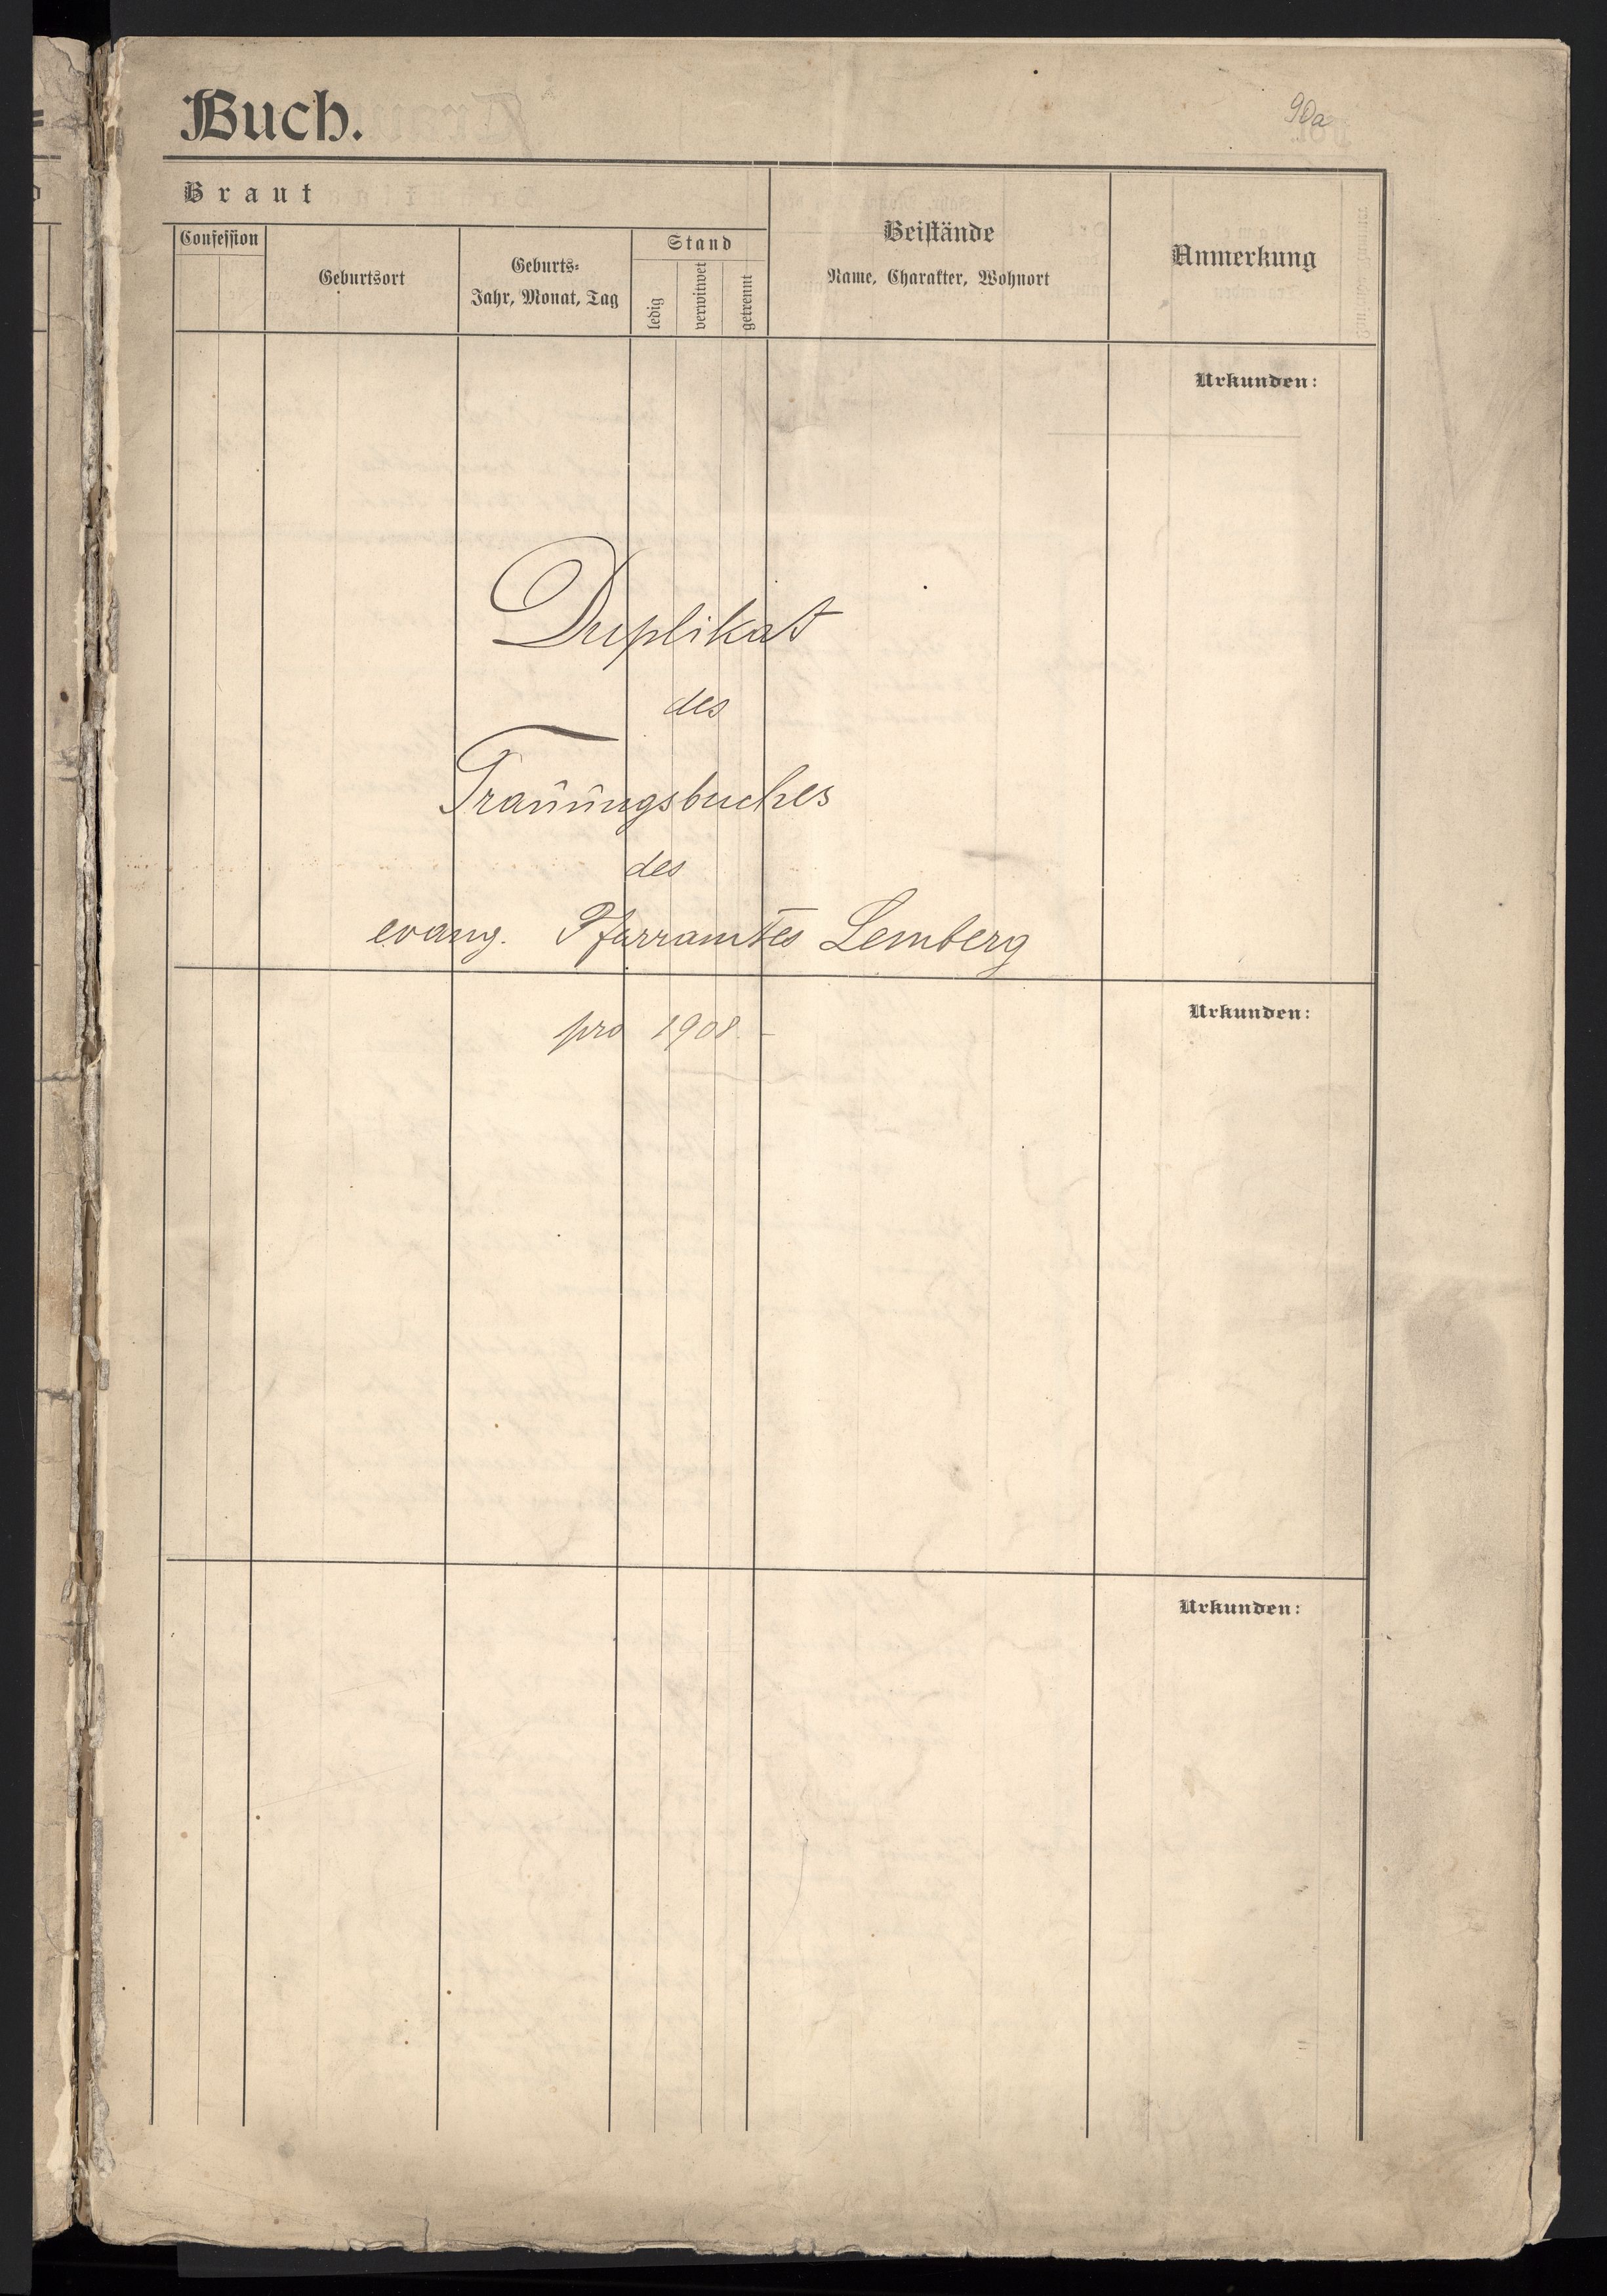 Buch.
90a
Braut
Confession
Geburtsort
Geburts-
Jahr, Monat, Tag
Stand
ledig
verwitwet
getrennt
Beistände
Name, Charakter, Wohnort
Anmerkung
Urkunden:
Duplikat
des
Trauungsbuches
des
evang. Pfarramtes Lemberg
pro 1908.
Urkunden:
Urkunden: